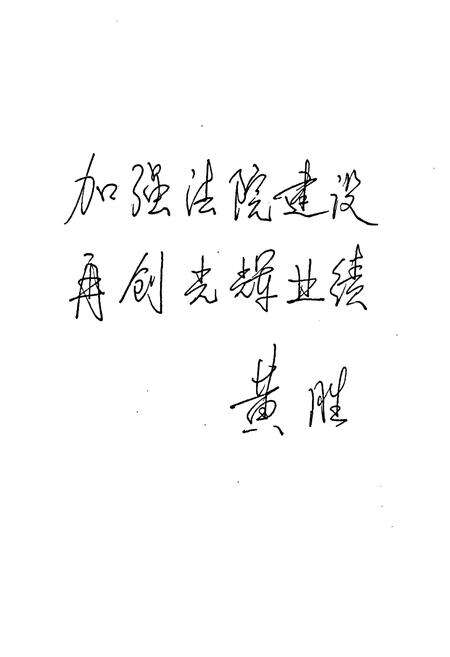 加强法院建设
再创光辉业绩
黄胜